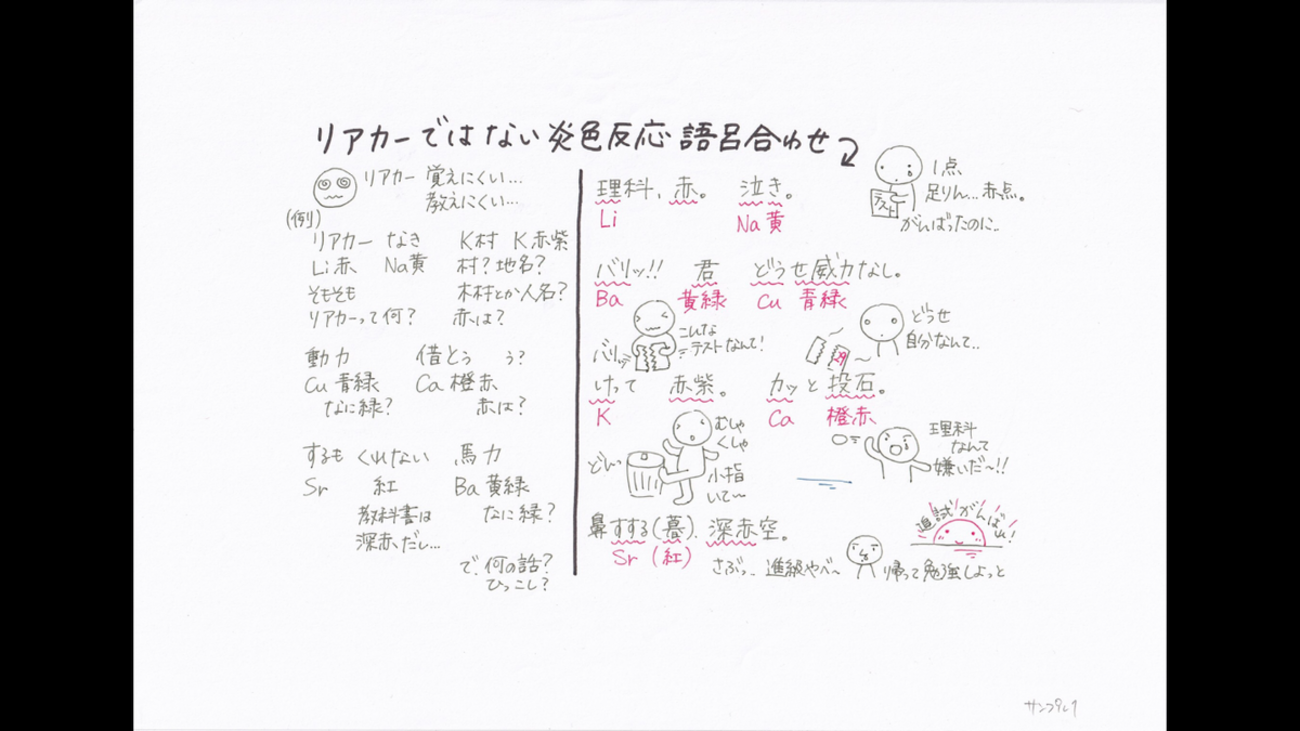 リアカーではない炎色反応語呂合わせ
リアカー 覚えにくい…
教えにくい…
(例)
リアカー なき K村 K赤紫
Li赤 Na黄 村?地名?
そもそも 木村とか人名?
リアカーって何? 赤は?
動力 借とう う?
Cu青緑 Ca橙赤
なに緑? 赤は?
するも くれない 馬力
Sr 紅 Ba黄緑
教科書は なに緑?
深赤だし…
で、何の話?
ひっこし?
理科、赤。 泣き。
Li Na黄
1点
足りん…赤点。
がんばったのに..
バリッ!! 君 どうせ威力なし。
Ba 黄緑 Cu 青緑
バリッ
こんな
テストなんて!
29
どうせ
自分なんて..
けって 赤紫。 カッと投石。
K Ca 橙赤
どんっ
むしゃ
くしゃ
小指
いて〜
理科
なんて
嫌いだ〜!!
鼻すする(暮)、深赤空。
Sr (紅)
さぶっ.. 進級やべ〜
帰って勉強しよっと
追試がんばれ!
サンプル1